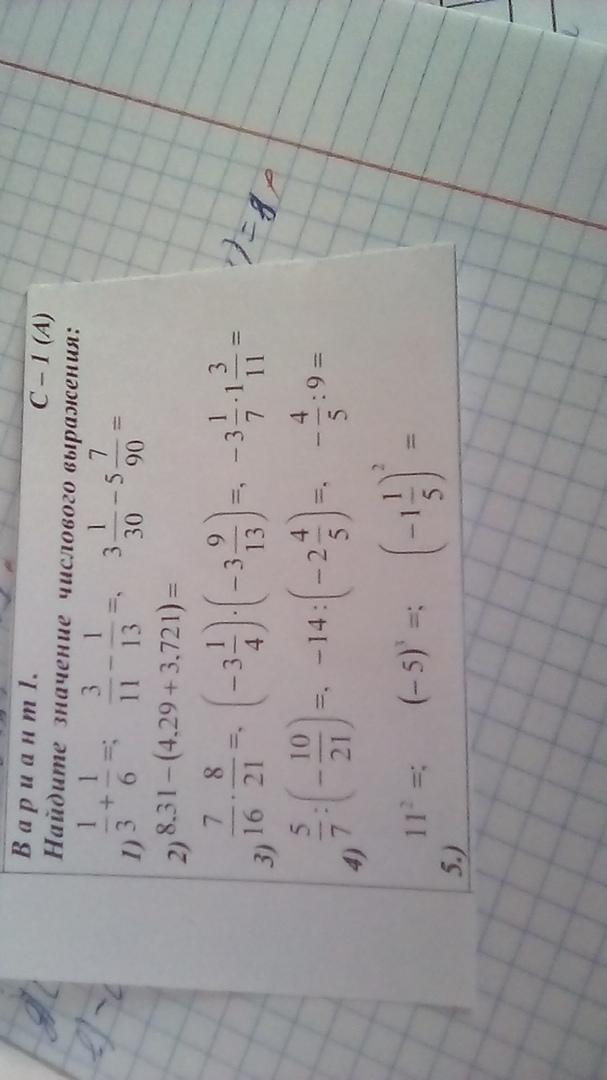 Вариант 1. С – 1 (А)
Найдите значение числового выражения:
1) 1/3 + 1/6 =; 3/11 − 1/13 =, 3 1/30 − 5 7/90 =
2) 8.31 − (4.29 + 3.721) =
3) 7/16 · 8/21 =, (−3 1/4) · (−3 9/13) =, −3 1/7 · 1 3/11 =
4) 5/7 : (−10/21) =, −14 : (−2 4/5) =, −4/5 : 9 =
5.) 11² =; (−5)³ =; (−1 1/5)² =
) = 8